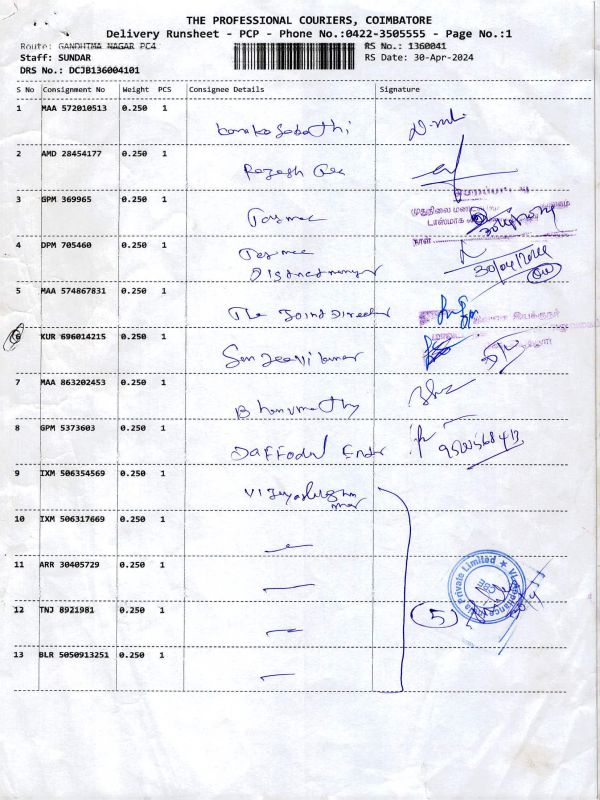 THE PROFESSIONAL COURIERS, COIMBATORE
Delivery Runsheet - PCP - Phone No.:0422-3505555 - Page No.:1
Route: GANDHIMA NAGAR PC4
RS No.: 1360041
Staff: SUNDAR
RS Date: 30-Apr-2024
DRS No.: DCJB136004101
S No Consignment No Weight PCS Consignee Details Signature
1 MAA 572010513 0.250 1
2 AMD 28454177 0.250 1 Rajesh
3 GPM 369965 0.250 1 Tasmac
முதுநிலை
டாஸ்மாக்
நாள்
4 DPM 705460 0.250 1 Tasmac
District manager
30/04/2024
5 MAA 574867831 0.250 1 The Joint Director
6 KUR 696014215 0.250 1 Sanjeevi kumar
7 MAA 863202453 0.250 1 Bhanumathy
8 GPM 5373603 0.250 1 Daffodil
9 IXM 506354569 0.250 1
10 IXM 506317669 0.250 1
11 ARR 30405729 0.250 1
Private Limited
12 TNJ 8921981 0.250 1 5
13 BLR 5050913251 0.250 1